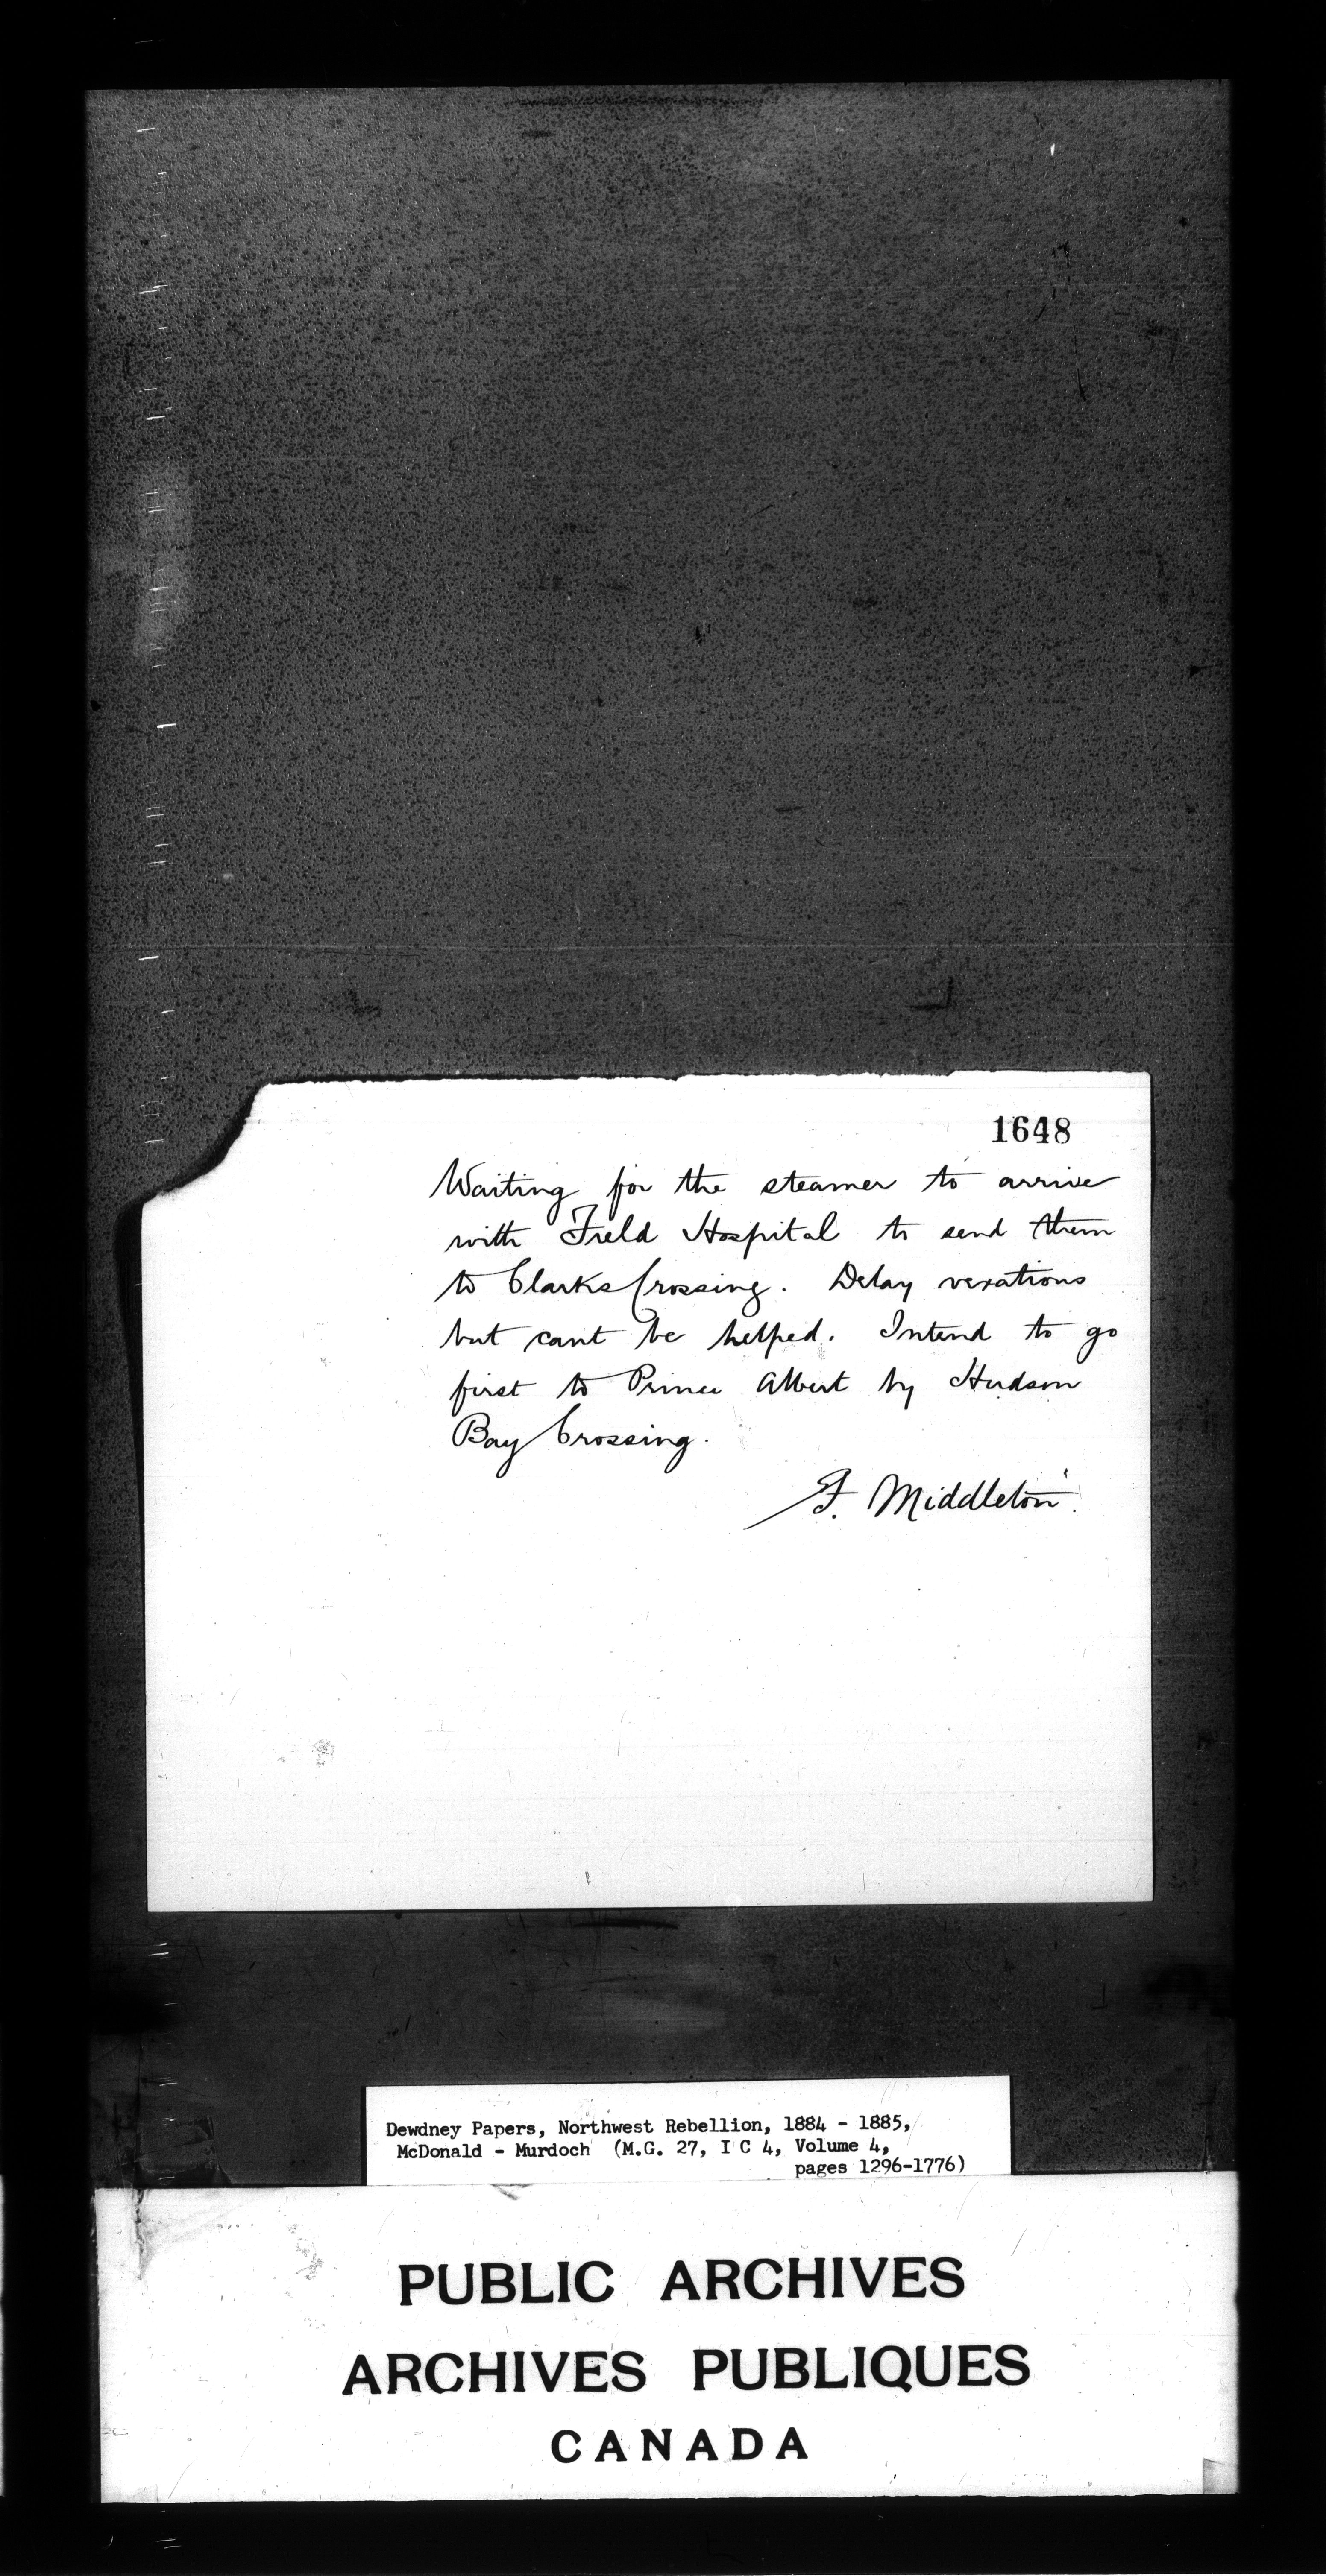 1648
Waiting for the steamer to arrive
with Field Hospital to send them
to Clarks Crossing. Delay vexatious
but cant be helped. Intend to go
first to Prince Albert by Hudson
Bay Crossing.
F. Middleton.
Dewdney Papers, Northwest Rebellion, 1884 - 1885,
McDonald - Murdoch (M.G. 27, I C 4, Volume 4,
pages 1296-1776)
PUBLIC ARCHIVES
ARCHIVES PUBLIQUES
CANADA